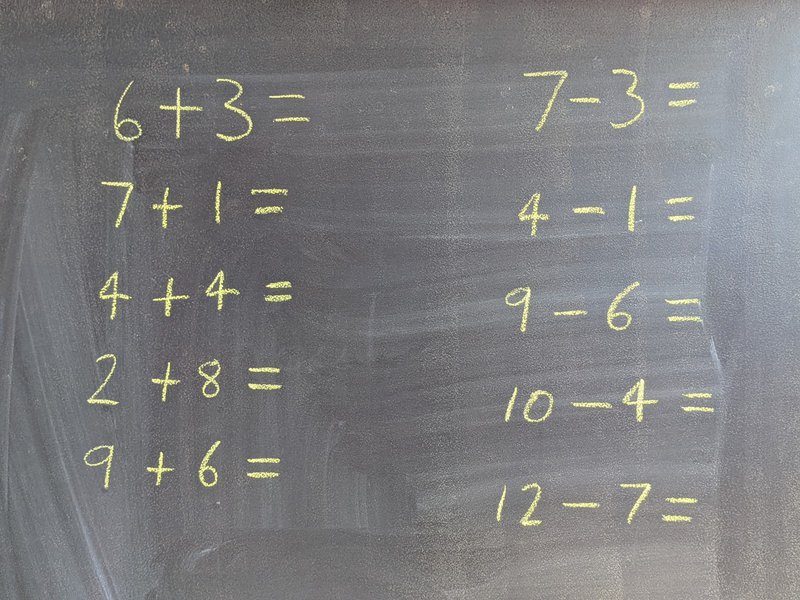 6+3=
7+1=
4+4=
2+8=
9+6=
7-3=
4-1=
9-6=
10-4=
12-7=